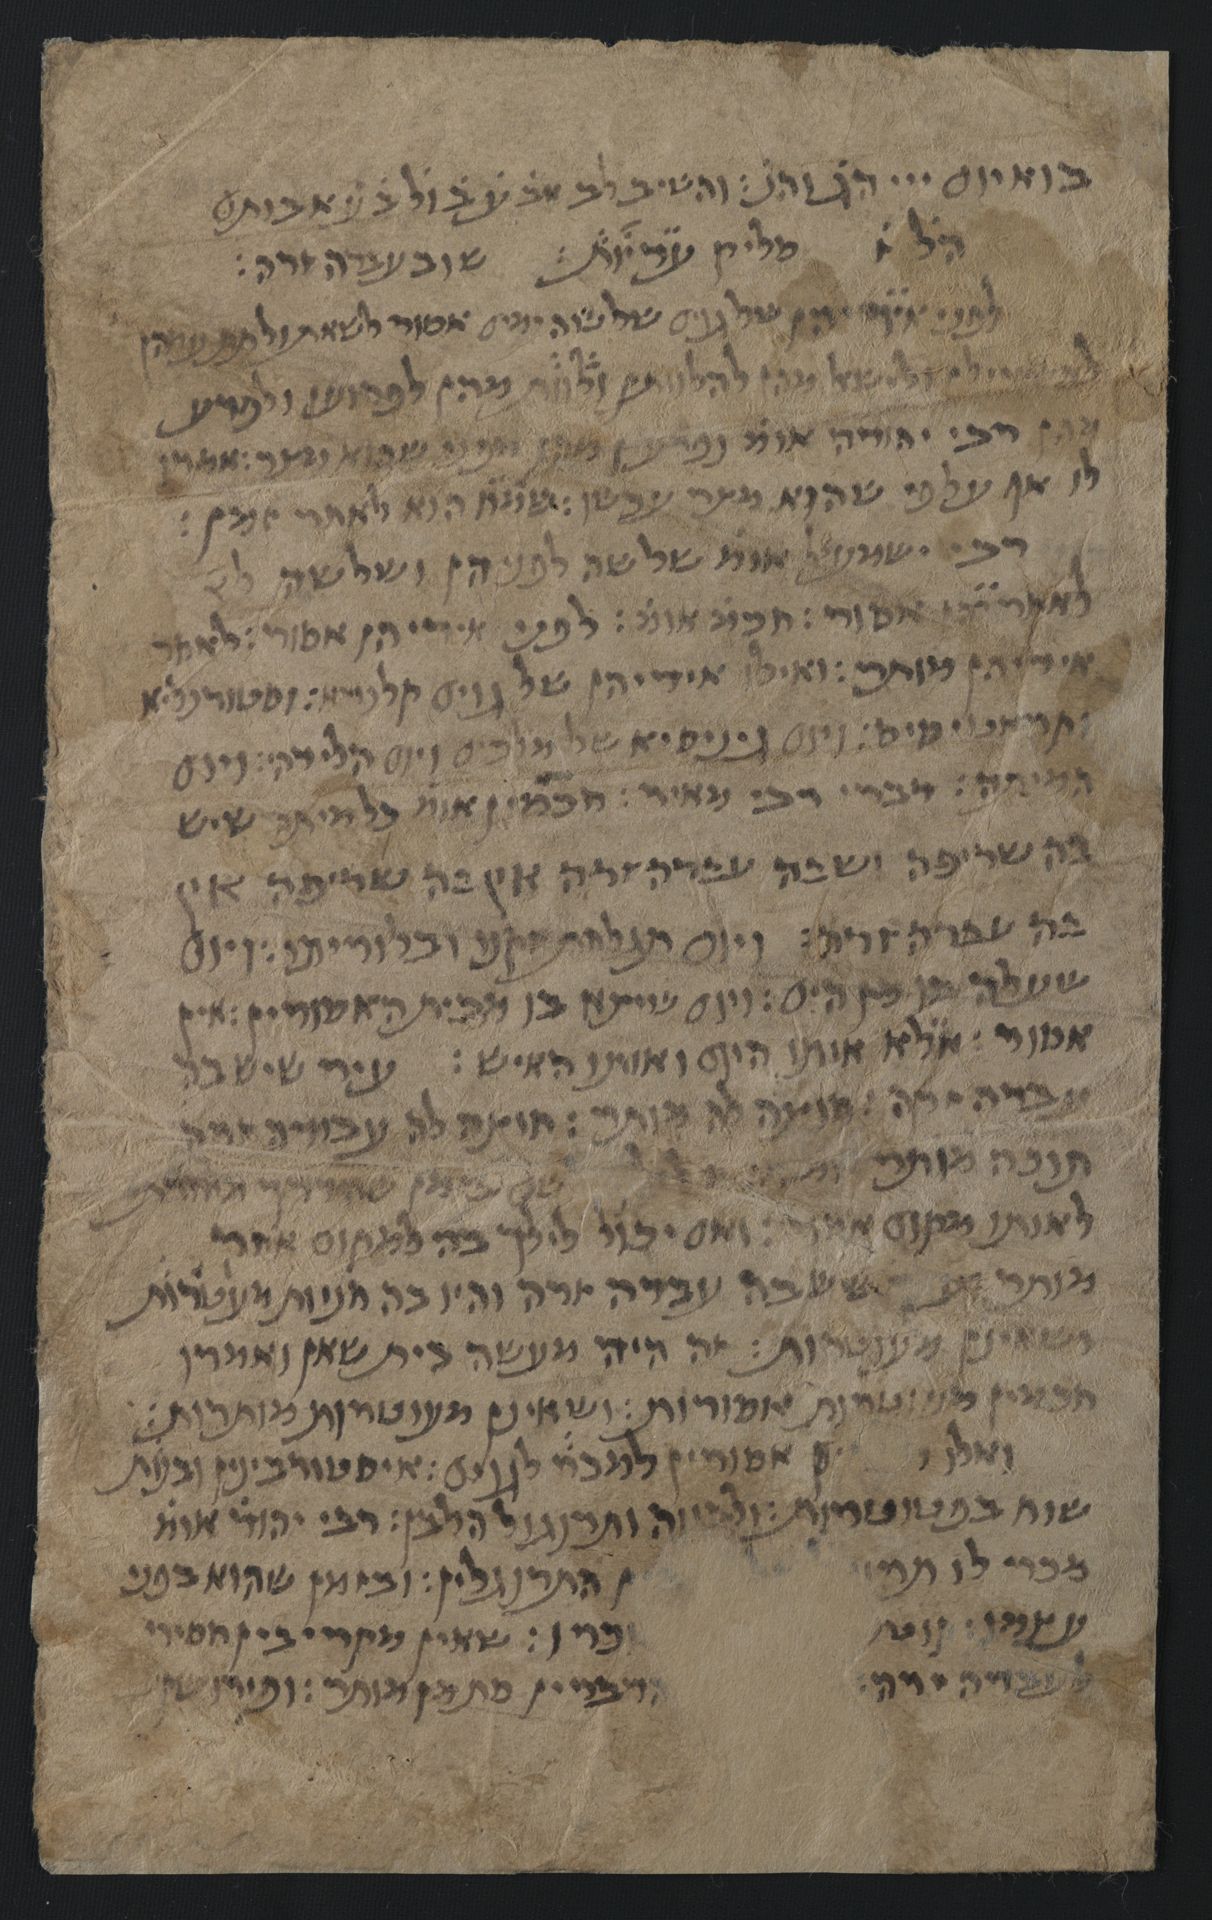 בוא יום ייי הג והנ : והשיב לב אב על ב ול ב על אבותם
סליק עדיות : שוב עבדה זרה :
לפני אידיהן שלגוים שלשה ימים אסור לשאת ולתת עמהן
להלוותם ללוות מהן לפרוען וליפרע
מהן רבי יהודה אומ נפרעין מהן מפני שהוא מצר : אמרו
לו אף על פי שהוא מצר עכשו : שמח הוא לאחר זמן :
רבי ישמעל אומ שלשה לפניהן ושלשה
לאחריהן אסור : חכמ אומ : לפני אידיהן אסור : לאחר
אידיהן מותר : ואילו אידיהן של גוים קלנדא : וסטורנליא
ויום גיניסיא של מלכים ויום הלידה : ויום
המיתה : דברי רבי מאיר : חכמין אומ כל מיתה שיש
בה שריפה ישבה עבדה זרה אין בה שריפה אין
בה עבדה זרה : ויום תגלחת זקנו ובלוריתו : ויום
שעלה בו מן הים : ויום שיצא בו מבית האסורין : אין
אסור : אלא אותו היום ואותו האיש : עיר שיש בה
עבדה זרה : חוצה לה מותר : חוצה לה עבודה זרה
תוכה מותר בזמן שהדרך מיוחדת
לאותו מקום אסור : ואם יכול לילך בה למקום אחר
מותר שישבה עבדה זרה והיו בה חניות מעטרות
ושאינן מעוטרות : זה היה מעשה בית שאן ואמרו
חכמין מעוטרות אסורות : ושאינן מעוטרות מותרות :
ואלו אסורין למכר לגוים : איסטורבילין ובנות
שוח בפטוטרות : ולבונה ותרנגול הלבן : רבי יהודי אומ
מכרי לו התרנגלין : ובזמן שהוא בפני
עצמו : קוטע ומכרו : שאין מקריבין חסירי
לעבודה זרה : הדברין סתמן מותר : ופירושן